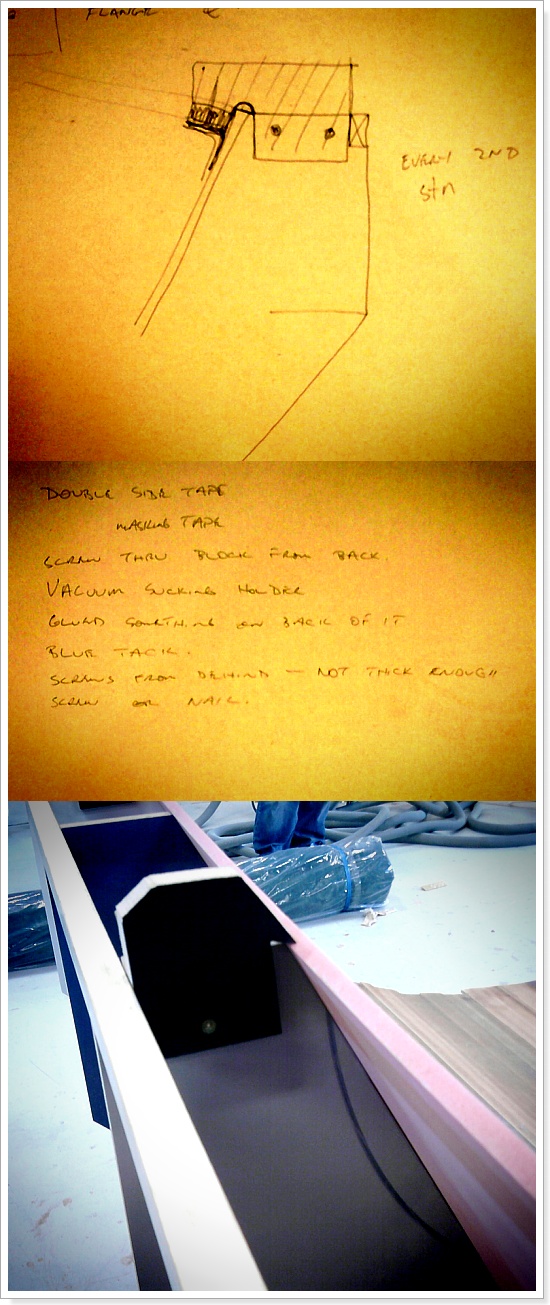 FLANGE &
EVERY 2ND
stn
DOUBLE SIDE TAPE
MASKING TAPE
SCREW THRU BLOCK FROM BACK.
VACUUM SUCKING HOLDER
GLUED SOMTHING ON BACK OF IT
BLUE TACK.
SCREWS FROM BEHIND — NOT THICK ENOUGH
SCREW OR NAIL.